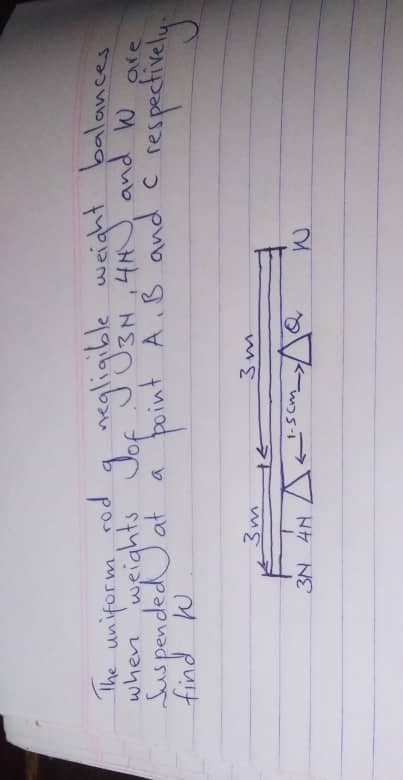 The uniform rod of negligible weight balances
when weights of 3N, 4N and W are
Suspended at a point A, B and C respectively.
find W.
3m 3m
1.5cm Q
3N 4N W